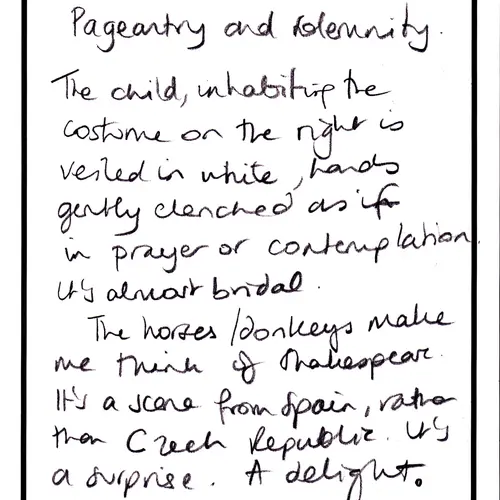 Pageantry and solemnity.
The child, inhabiting the
costume on the right is
veiled in white, hands
gently clenched as if
in prayer or contemplation.
It's almost bridal.
The horses/donkeys make
me think of Shakespear.
It's a scene from Spain, rather
than Czech Republic. It's
a surprise. A delight.